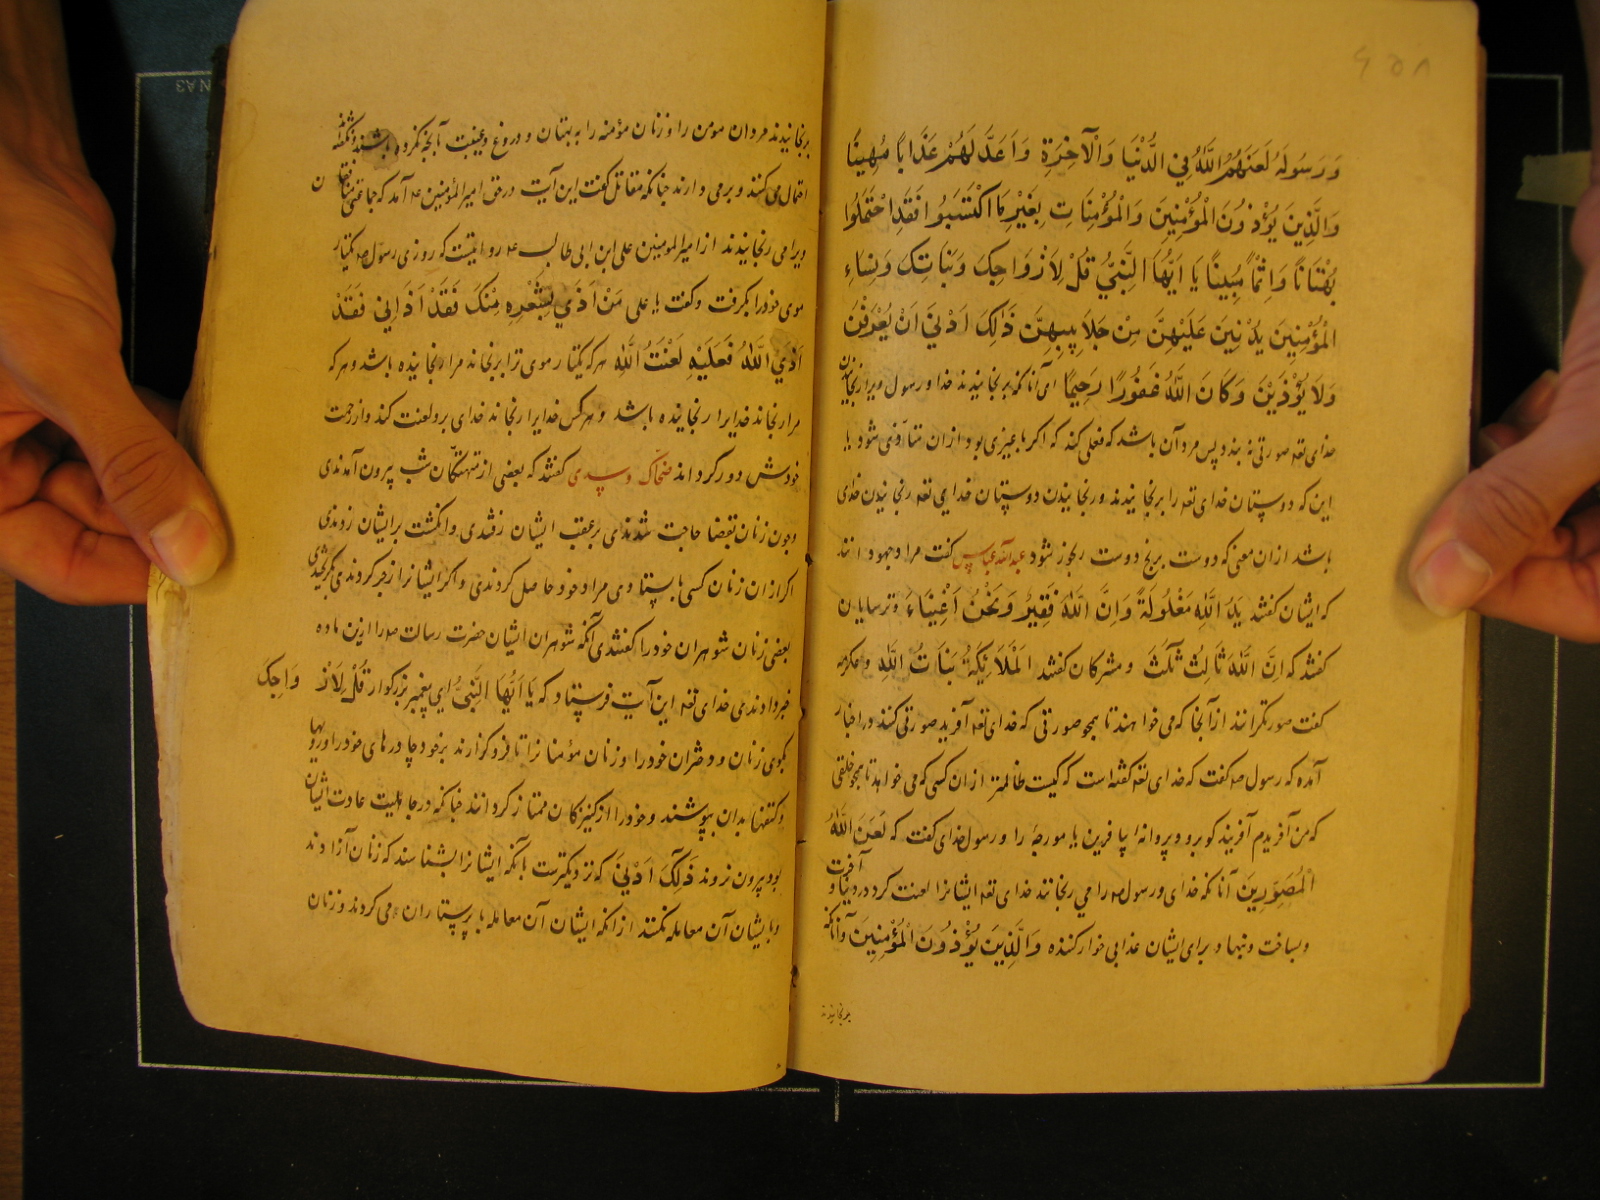 ۶۵۸
وَرَسُولَهُ لَعَنَهُمُ اللَّهُ فِي الدُّنْيَا وَالْآخِرَةِ وَاَعَدَّ لَهُمْ عَذَابًا مُهِينًا
وَالَّذِينَ يُؤْذُونَ الْمُؤْمِنِينَ وَالْمُؤْمِنَاتِ بِغَيْرِ مَا اكْتَسَبُوا فَقَدِ احْتَمَلُوا
بُهْتَانًا وَاِثْمًا مُبِينًا يَا اَيُّهَا النَّبِيُّ قُلْ لِاَزْوَاجِكَ وَبَنَاتِكَ وَنِسَاءِ
الْمُؤْمِنِينَ يُدْنِينَ عَلَيْهِنَّ مِنْ جَلَابِيبِهِنَّ ذَلِكَ اَدْنَىٰ اَنْ يُعْرَفْنَ
وَلَا يُؤْذَيْنَ وَكَانَ اللَّهُ غَفُورًا رَحِيمًا ای آنانکه برنجانیدند خدا و رسول ویرا رنجانیدن
خدای تعه صورتی نه بندد پس مرد آن باشد که فعلی کند که اکر با غیری بود از ان متأذی شود یا
این که دوستان خدای تعه را برنجانیدند و رنجانیدن دوستان خدای تعه رنجانیدن خدای
باشد از ان معنی که دوست برنج دوست رنجور شود عبدالله عباس کفت مراد جهودانند
که ایشان کفتند يَدُ اللَّهِ مَغْلُولَةٌ وَاِنَّ اللَّهَ فَقِيرٌ وَنَحْنُ اَغْنِيَاءُ و ترسایان
کفتند که اِنَّ اللَّهَ ثَالِثُ ثَلٰثَةٍ و مشرکان کفتند الْمَلَائِكَةُ بَنَاتُ اللَّهِ و عکرمه
کفت صورتکرانند از آنجا که می خواهند تا همچو صورتی که خدای تعه آفرید صورتی کنند در اخبار
آمده که رسول صه کفت که خدای تعه کفته است که کیست ظالمتر از ان کسی که می خواهد تا همچو خلقی
که من آفریدم آفریند کو برو و پروانهٔ بیافرین یا مورچهٔ را و رسول خدای کفت که لَعَنَ اللَّهُ
الْمُصَوِّرِينَ آنانکه خدای و رسول صه را می رنجانند خدای تعه ایشانرا لعنت کرد در دنیا و آخرت
و بساخت و نهاد برای ایشان عذابی خوار کننده وَالَّذِينَ يُؤْذُونَ الْمُؤْمِنِينَ و آنانکه
برنجانیدند
برنجانیدند مردان مومن را و زنان مؤمنه را به بهتان و دروغ و غیبت آنچه نکرده باشند و نکفته
احتمال می کنند و بر می دارند چنانکه مقاتل کفت این آیت در حق امیر المؤمنین عه آمد که جماعتی منافقان
ویرا می رنجانیدند از امیرالمومنین علی ابن ابی طالب عه روایتست که روزی رسول صه یکتار
موی خود را بکرفت و کفت یا علی مَنْ اَذَي بِشَعْرِهِ مِنْكَ فَقَدْ اَذَانِي فَقَدْ
اَذَي اللَّهُ فَعَلَيْهِ لَعْنَتُ اللَّهِ هر که یکتار موی ترا برنجاند مرا رنجانیده باشد و هر که
مرا رنجاند خدایرا رنجانیده باشد و هر کس خدایرا رنجاند خدای برو لعنت کند و از رحمت
خودش دور کرداند ضحاک و سدی کفتند که بعضی از متهتکان شب بیرون آمدندی
و چون زنان بقضا حاجت شدندی بر عقب ایشان رفتندی و انکشت بر ایشان زدندی
اکر از ان زنان کسی با یستادی مراد خود حاصل کردندی و اکر ایشانرا زجر کردندی بکریختندی
بعضی زنان شوهران خود را کفتندی آنکه شوهران ایشان حضرت رسالت صه را ازین ماده
خبر دادندی خدای تعه این آیت فرستاد که يَا اَيُّهَا النَّبِيُّ ای پیغمبر بزرکوار قُلْ لِاَزْوَاجِكَ
بکوی زنان و دختران خود را و زنان مؤمنانرا تا فرو کذارند بر خود چادرهای خود را و رویها
و کتفها بدان بپوشند و خود را از کنیزکان ممتاز کردانند چنانکه در جاهلیت عادت ایشان
بود بیرون نروند ذَلِكَ اَدْنَىٰ که نزدیکترست بانکه ایشانرا بشناسند که زنان آزادند
و با ایشان آن معامله نکنند از انکه ایشان آن معامله با پرستاران می کردند و زنان